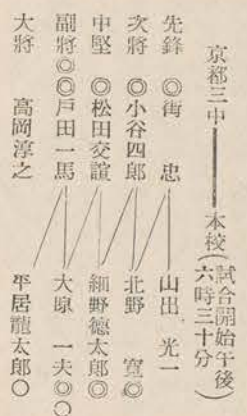 京都三中━━本校(試合開始午後六時三十分)
先鋒 ◎街 忠 山出 光一
次將 ◎小谷四郎 北野 寬◎
中堅 ◎松田交誼 細野德太郎◎
副將◎◎戸田一馬 大原 一夫◎○
大將 高岡淳之 平居龍太郎○